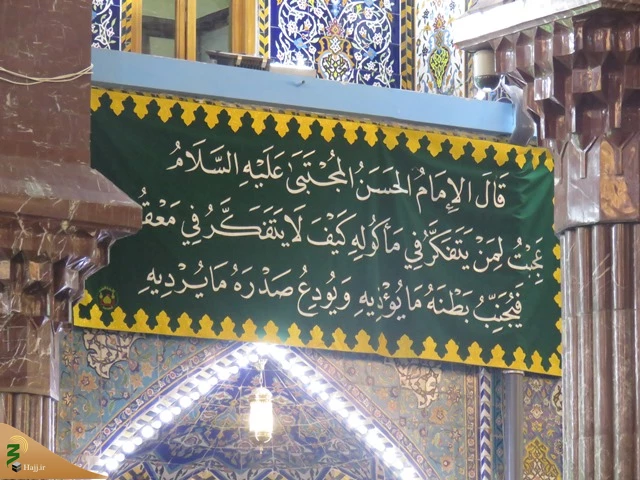 قَالَ الإِمَامُ الحَسَنُ المُجْتَبَىٰ عَلَيْهِ السَّلَامُ
عَجِبْتُ لِمَنْ يَتَفَكَّرُ فِي مَأْكُولِهِ كَيْفَ لَا يَتَفَكَّرُ فِي
فَيُجَنِّبُ بَطْنَهُ مَا يُؤْذِيهِ وَيُودِعُ صَدْرَهُ مَا يُرْدِيهِ
Hajj.ir